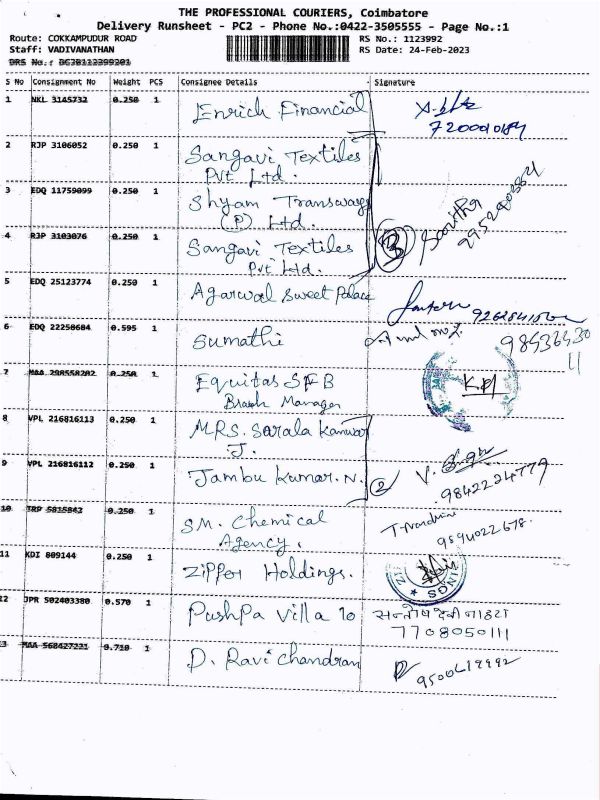 THE PROFESSIONAL COURIERS, Coimbatore
Delivery Runsheet - PC2 - Phone No.:0422-3505555 - Page No.:1
Route: COKKAMPUDUR ROAD RS No.: 1123992
Staff: VADIVANATHAN RS Date: 24-Feb-2023
DRS No.:
S No Consignment No Weight PCS Consignee Details Signature
1 NKL 3145732 0.250 1 Enrich Financial
2 RJP 3106052 0.250 1 Sangavi Textiles
Pvt Ltd.
3 EDQ 11759099 0.250 1 Shyam Transways
(P) Ltd.
4 RJP 3103076 0.250 1 Sangavi Textiles
Pvt Ltd.
5 EDQ 25123774 0.250 1 Agarwal Sweet Palace
6 EDQ 22250684 0.595 1 Sumathi
7 MAA 298558202 0.250 1 Equitas SFB
Branch Manager
8 VPL 216816113 0.250 1 MRS. Sarala Kanwar
J.
9 VPL 216816112 0.250 1 Jambu Kumar. N. 2
9842224779
10 TRP 5815842 0.250 1 SM. Chemical
Agency.
9594022678.
11 KDI 809144 0.250 1 Zipper Holdings.
12 JPR 502403380 0.570 1 Pushpa Villa 10 सन्तोष देवी नाहटा
7708050111
13 MAA 568427221 0.710 1 D. Ravi Chandran